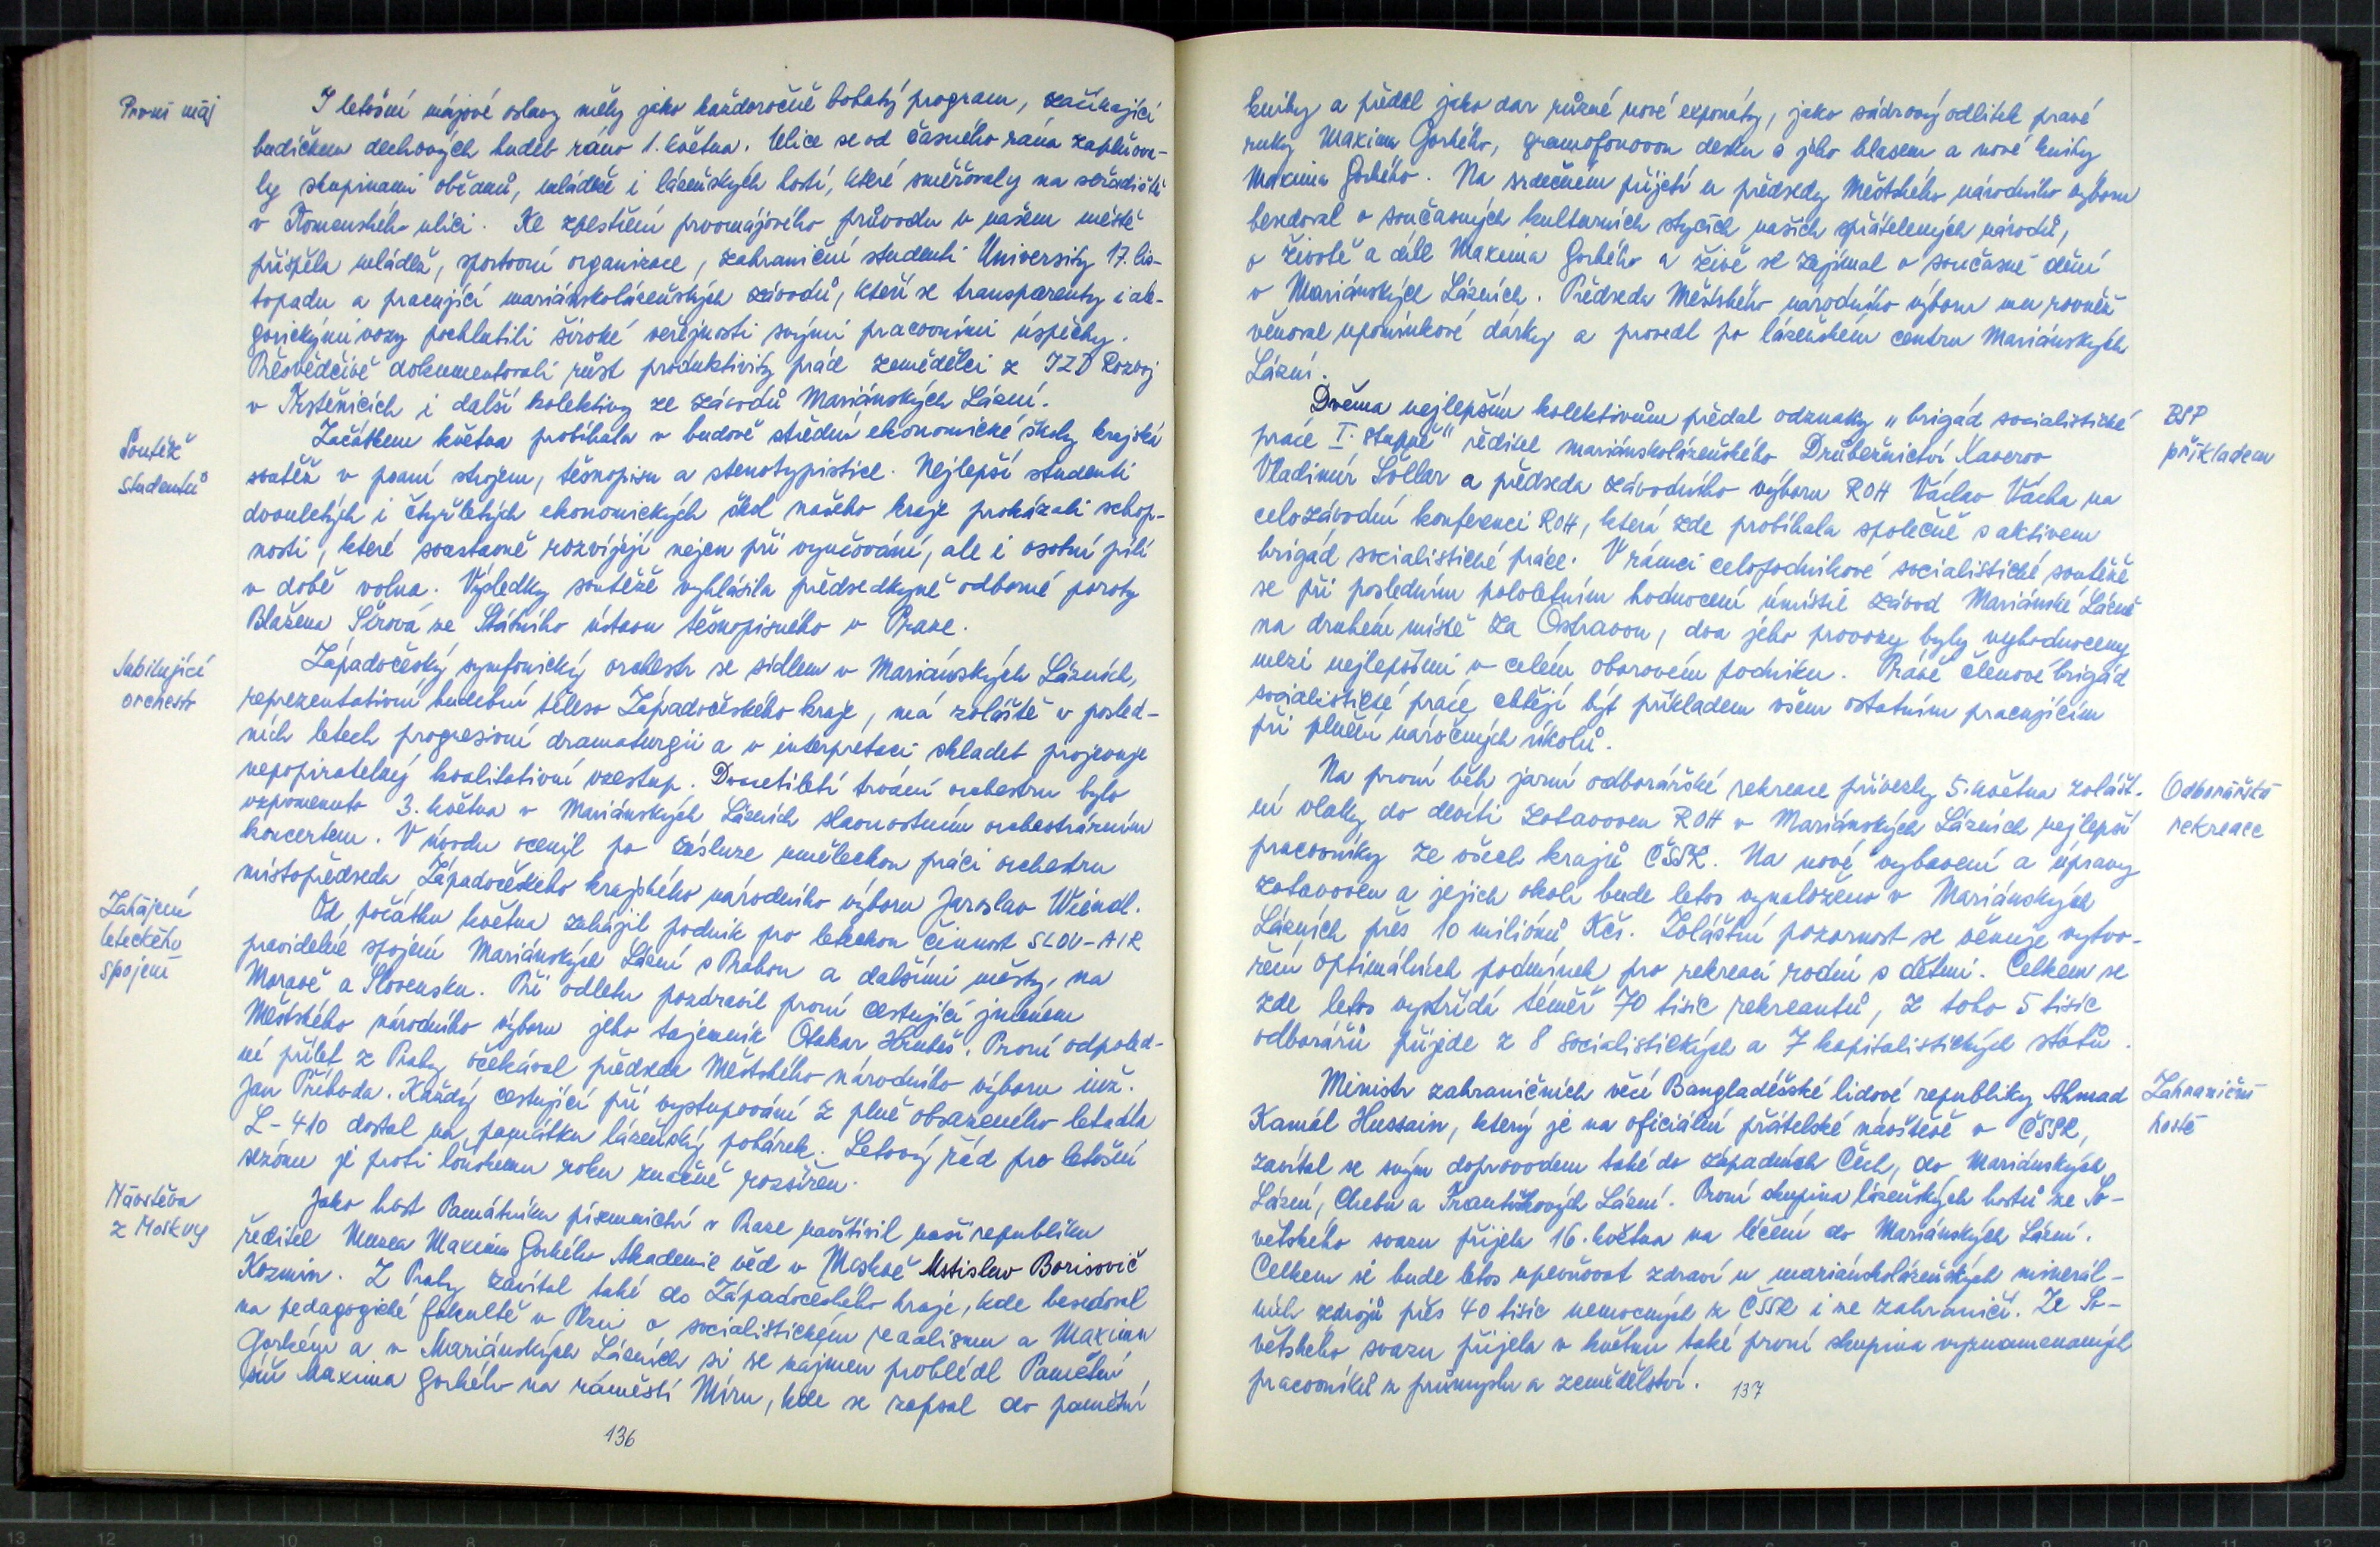 První máj
I letošní májové oslavy měly jako každoročně bohatý program, začínající
budíčkem dechových hudeb ráno 1. května. Ulice se od časného rána zaplňova-
ly skupinami občanů, mládeže i lázeňských hostí, které směřovaly na seřadiště
v Komenského ulici. Ke zpestření prvomájového průvodu v našem městě
přispěla mládež, sportovní organizace, zahraniční studenti University 17. lis-
topadu a pracující mariánskolázeňských závodů, kteří se transparenty i ale-
gorickými vozy pochlubili široké veřejnosti svými pracovními úspěchy.
Přesvědčivě dokumentovali růst produktivity prád zemědělci z JZD Rozvoj
v Trstěnicích i další kolektivy ze závodů Mariánských Lázní.
Soutěž
studentů
Začátkem května probíhala v budově střední ekonomické školy krajská
soutěž v psaní strojem, těsnopisu a stenotypistice. Nejlepší studenti
dvouletých i čtyřletých ekonomických škol našeho kraje prokázali schop-
nosti, které soustavně rozvíjejí nejen při vyučování, ale i osobní pílí
v době volna. Výsledky soutěže vyhlásila předsedkyně odborné poroty
Blažena Sírová ze Státního ústavu těsnopisného v Praze.
Jubilující
orchestr
Západočeský symfonický orchestr se sídlem v Mariánských Lázních,
reprezentativní hudební těleso Západočeského kraje, má zvláště v posled-
ních letech progresivní dramaturgii a v interpretaci skladeb projevuje
nepopiratelný kvalitativní vzestup. Dvacetiletí trvání orchestru bylo
vzpomenuto 3. května v Mariánských Lázních slavnostním orchestrálním
koncertem. V úvodu ocenil po zásluze uměleckou práci orchestru
místopředseda Západočeského krajského národního výboru Jaroslav Weindl.
Zahájení
leteckého
spojení
Od počátku května zahájil podnik pro leteckou činnost SLOV-AIR
pravidelné spojení Mariánských Lázní s Prahou a dalšími městy, na
Moravě a Slovensku. Při odletu pozdravil první cestující jménem
Městského národního výboru jeho tajemník Otakar Hrubeš. První odpoled-
ní přílet z Prahy očekával předseda Městského národního výboru inž.
Jan Příhoda. Každý cestující při vystupování z plně obsazeného letadla
L-410 dostal na památku lázeňský pohárek. Letový řád pro letošní
sezónu je proti loňskému roku značně rozšířen.
Návštěva
z Moskvy
Jako host Památníku písemnictví v Praze navštívil naši republiku
ředitel Musea Maxima Gorkého Akademie věd v Moskvě Mstislav Borisovič
Kozmin. Z Prahy zavítal také do Západočeského kraje, kde besedoval
na pedagogické fakultě v Plzni o socialistickém realismu a Maximu
Gorkém a v Mariánských Lázních si se zájmem prohlédl Pamětní
síň Maxima Gorkého na náměstí Míru, kde se zapsal do pamětní
136
knihy a předal jako dar různé nové exponáty, jako sádrový odlitek pravé
ruky Maxima Gorkého, gramofonovou desku s jeho hlasem a nové knihy
Maxima Gorkého. Na srdečném přijetí u předsedy Městského národního výboru
besedoval o současných kulturních stycích našich spřátelených národů,
o životě a díle Maxima Gorkého a živě se zajímal o současné dění
v Mariánských Lázních. Předseda Městského národního výboru mu rovněž
věnoval upomínkové dárky a provedl po lázeňském centru Mariánských
Lázní.
BSP
příkladem
Dvěma nejlepším kolektivům předal odznaky „brigád socialistické
práce I. stupně" ředitel mariánskolázeňského Drůbežnictví Xaverov
Vladimír Šollar a předseda závodního výboru ROH Václav Vácha na
celozávodní konferenci ROH, která zde probíhala společně s aktivem
brigád socialistické práce. V rámci celopodnikové socialistické soutěže
se při posledním pololetním hodnocení umístil závod Mariánské Lázně
na druhém místě za Ostravou, dva jeho provozy byly vyhodnoceny
mezi nejlepšími v celém oborovém podniku. Právě členové brigád
socialistické práce chtějí být příkladem všem ostatním pracujícím
při plnění náročných úkolů.
Odborářská
rekreace
Na první běh jarní odborářské rekreace přivezly 5. května zvlášt-
ní vlaky do devíti zotavoven ROH v Mariánských Lázních nejlepší
pracovníky ze všech krajů ČSSR. Na nové vybavení a úpravy
zotavoven a jejich okolí bude letos vynaloženo v Mariánských
Lázních přes 10 miliónů Kčs. Zvláštní pozornost se věnuje vytvo-
ření optimálních podmínek pro rekreaci rodin s dětmi. Celkem se
zde letos vystřídá téměř 70 tisíc rekreantů, z toho 5 tisíc
odborářů přijede z 8 socialistických a 7 kapitalistických států.
Zahraniční
hosté
Ministr zahraničních věcí Bangladéšské lidové republiky Ahmad
Kamál Hussain, který je na oficiální přátelské návštěvě v ČSSR,
zavítal se svým doprovodem také do západních Čech, do Mariánských
Lázní, Chebu a Františkových Lázní. První skupina lázeňských hostů ze So-
větského svazu přijela 16. května na léčení do Mariánských Lázní.
Celkem si bude letos upevňovat zdraví u mariánskolázeňských minerál-
ních zdrojů přes 40 tisíc nemocných z ČSSR i ze zahraničí. Ze So-
větského svazu přijela v květnu také první skupina vyznamenaných
pracovníků z průmyslu a zemědělství.
137